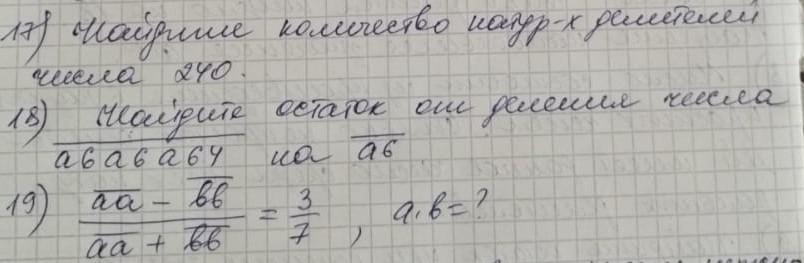 17) Найдите количество натур-х делителей
числа 240.
18) Найдите остаток от деления числа
aбaбaб4 на aб
19) (aa - вв) / (aa + вв) = 3/7 , a·в=?